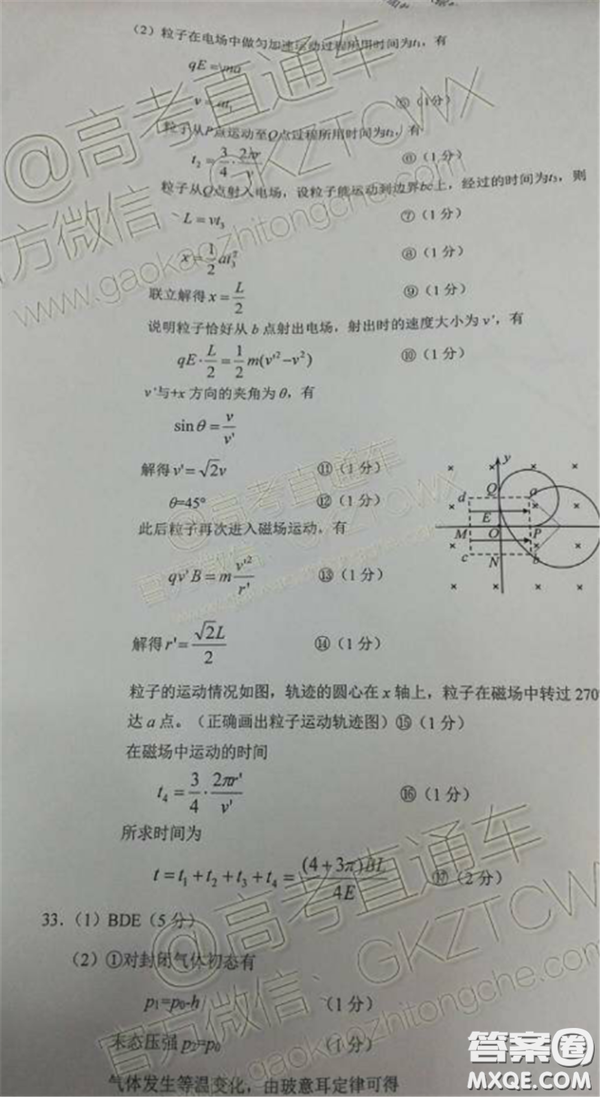 (2) 粒子在电场中做匀加速运动过程所用时间为t₁，有
qE=ma
v=at₁ ⑤（1分）
粒子从P点运动至Q点过程所用时间为t₂，有
t₂=3/4·2πr/v ⑥（1分）
粒子从Q点射入电场，设粒子能运动到边界bc上，经过的时间为t₃，则
L=vt₃ ⑦（1分）
x=1/2at₃² ⑧（1分）
联立解得x=L/2 ⑨（1分）
说明粒子恰好从 b 点射出电场，射出时的速度大小为 v'，有
qE·L/2=1/2m(v'²-v²) ⑩（1分）
v'与+x 方向的夹角为θ，有
sinθ=v/v'
解得v'=√2v ⑪（1分）
θ=45° ⑫（1分）
此后粒子再次进入磁场运动，有
qv'B=mv'²/r' ⑬（1分）
解得r'=√2L/2 ⑭（1分）
y
d Q a
E
M O P x
c N b
粒子的运动情况如图，轨迹的圆心在 x 轴上，粒子在磁场中转过 270
达 a 点。（正确画出粒子运动轨迹图）⑮（1分）
在磁场中运动的时间
t₄=3/4·2πr'/v' ⑯（1分）
所求时间为
t=t₁+t₂+t₃+t₄=(4+3π)BL/4E ⑰（2分）
33.（1）BDE（5分）
（2）①对封闭气体初态有
p₁=p₀-h （1分）
末态压强 p₂=p₀ （1分）
气体发生等温变化，由玻意耳定律可得
@高考直通车
官方微信：GKZTCWX
www.gaokaozhitongche.com
@高考直通车
官方微信：GKZTCWX
@高考直通车
官方微信：GKZTCWX
gaokaozhitongche.com
答案圈
MXQE.COM